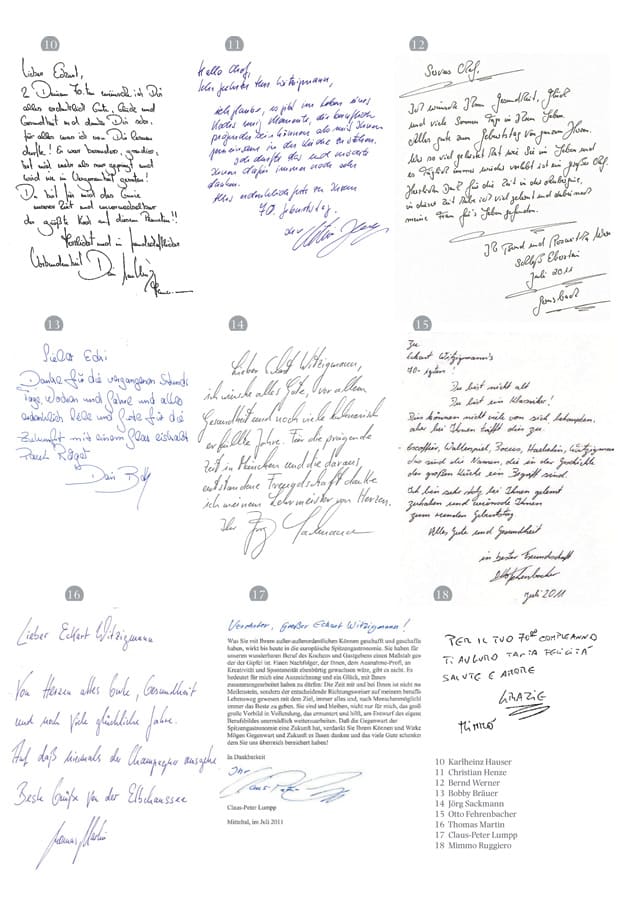 10
Lieber Eckart,
2 Deinem 70ten wünsch ich Dir
alles erdenklich Gute, Liebe und
Gesundheit und danke Dir sehr,
für alles was ich von Dir lernen
durfte! Es war besonders, grandios,
hat mich mehr als nur geprägt und
wird nie in Vergessenheit geraten!
Du bist für mich das Genie
unserer Zeit und unverwechselbar
der größte Koch auf diesem Planeten!!
Herzlichst und in freundschaftlicher
Verbundenheit Dein
11
Hallo Chef,
lieber Herr Witzigmann,
ich glaube, es gibt im Leben eines
Koches nur Momente, die
prägender sein können als mit Ihnen
gemeinsam in der Küche
Ich durfte das und
Ihnen dafür immer
danken.
Alles erdenklich Gute zu Ihrem
70. Geburtstag.
12
Servus Chef.
Ich wünsche Ihnen Gesundheit, Glück
und viele Sonnen Tage in Ihrem Leben
Alles gute zum Geburtstag von ganzem Herzen.
Herzlichen Dank für die Zeit in der Aubergine,
in dieser Zeit habe ich viel gelernt und
meine Frau für's Leben gefunden.
Ihr Bernd und Roswitha Werner
Schloß Eberstein
Juli 2011
Gernsbach
13
Lieber Ecki
Danke für die vergangenen Stunden
Tage, Wochen und Jahre und alles
erdenklich liebe und Gute für die
Zukunft mit einem Glas
Dein Bobby
14
Lieber Eckart Witzigmann,
ich wünsche alles Gute, vor allem
Gesundheit und noch viele kulinarisch
erfüllte Jahre. Für die prägende
Zeit in München und die daraus
entstandene Freundschaft danke
ich meinem Lehrmeister von Herzen.
Ihr Jörg Sackmann
15
Zu
Eckart Witzigmann's
70-igsten!
Du bist nicht alt
Du bist ein Klassiker!
Dies können nicht viele von sich behaupten,
aber bei Ihnen trifft dies zu.
Escoffier, Walterspiel, Bocuse, Haeberlin, Witzigmann
das sind die Namen, die in der Geschichte
der großen Küche ein Begriff sind.
Ich bin sehr stolz, bei Ihnen gelernt
zuhaben und wünsche Ihnen
zum runden Geburtstag
Alles Gute und Gesundheit
in bester Freundschaft
Otto Fehrenbacher
Juli 2011
16
Lieber Eckart Witzigmann
Von Herzen alles Gute, Gesundheit
und noch viele glückliche Jahre.
Auf daß niemals der Champagner ausgehe
Beste Grüße von der Elbchaussee
Thomas Martin
17
Verehrter, Großer Eckart Witzigmann!
Was Sie mit Ihrem außer-außerordentlichen Können geschafft und geschaffen
haben, wirkt bis heute in die europäische Spitzengastronomie. Sie haben für
unseren wunderbaren Beruf des Kochens und Gastgebens einen Maßstab gesetzt,
der der Gipfel ist. Einen Nachfolger, der Ihnen, dem Ausnahme-Profi, an
Kreativität und Spontaneität ebenbürtig gewachsen wäre, gibt es nicht. Es
bedeutet für mich eine Auszeichnung und ein Glück, mit Ihnen
zusammengearbeitet haben zu dürfen: Die Zeit mit und bei Ihnen ist nicht nur
Meilenstein, sondern der entscheidende Richtungsweiser auf meinem beruflichen
Lebensweg gewesen mit dem Ziel, immer alles und, nach Menschenmöglichkeit,
immer das Beste zu geben. Sie sind und bleiben, nicht nur für mich, das große,
große Vorbild in Vollendung, das ermuntert und hilft, am Entwurf des eigenen
Berufsbildes unermüdlich weiterzuarbeiten. Daß die Gegenwart der
Spitzengastronomie eine Zukunft hat, verdankt Ihrem Können und Wirken.
Mögen Gegenwart und Zukunft es Ihnen danken und das viele Gute schenken, in
dem Sie uns überreich bereichert haben!
In Dankbarkeit
Ihr
Claus-Peter Lumpp
Mitteltal, im Juli 2011
18
PER IL TUO 70° COMPLEANNO
TI AUGURO TANTA FELICITÀ
SALUTE E AMORE
GRAZIE
MIMMO
10 Karlheinz Hauser
11 Christian Henze
12 Bernd Werner
13 Bobby Bräuer
14 Jörg Sackmann
15 Otto Fehrenbacher
16 Thomas Martin
17 Claus-Peter Lumpp
18 Mimmo Ruggiero